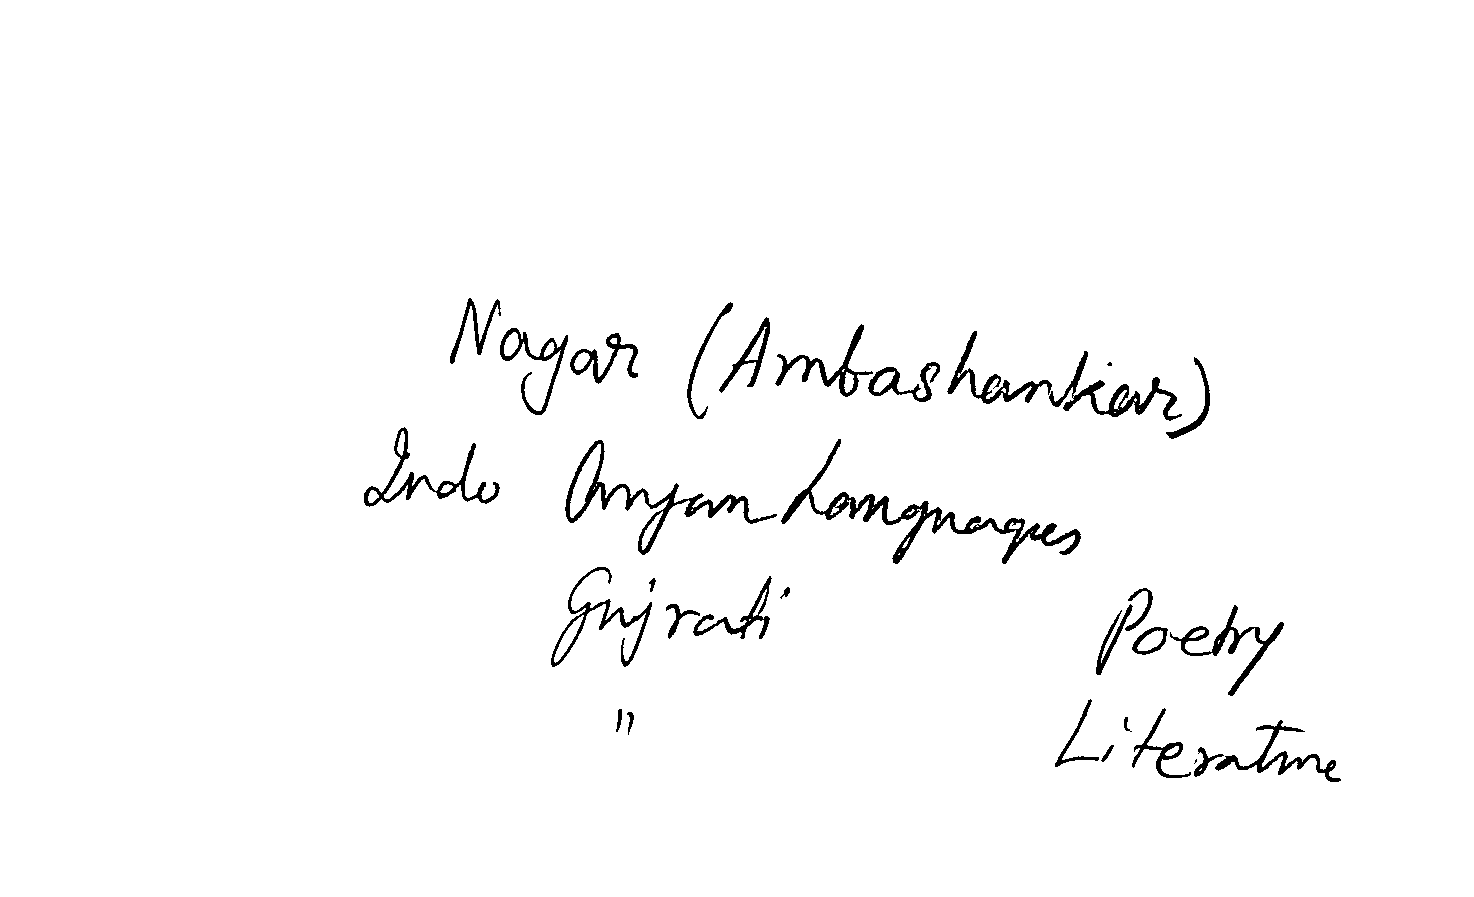 Nagar (Ambashankar)
Indo Aryan Languages
Gujrati Poetry
" Literature